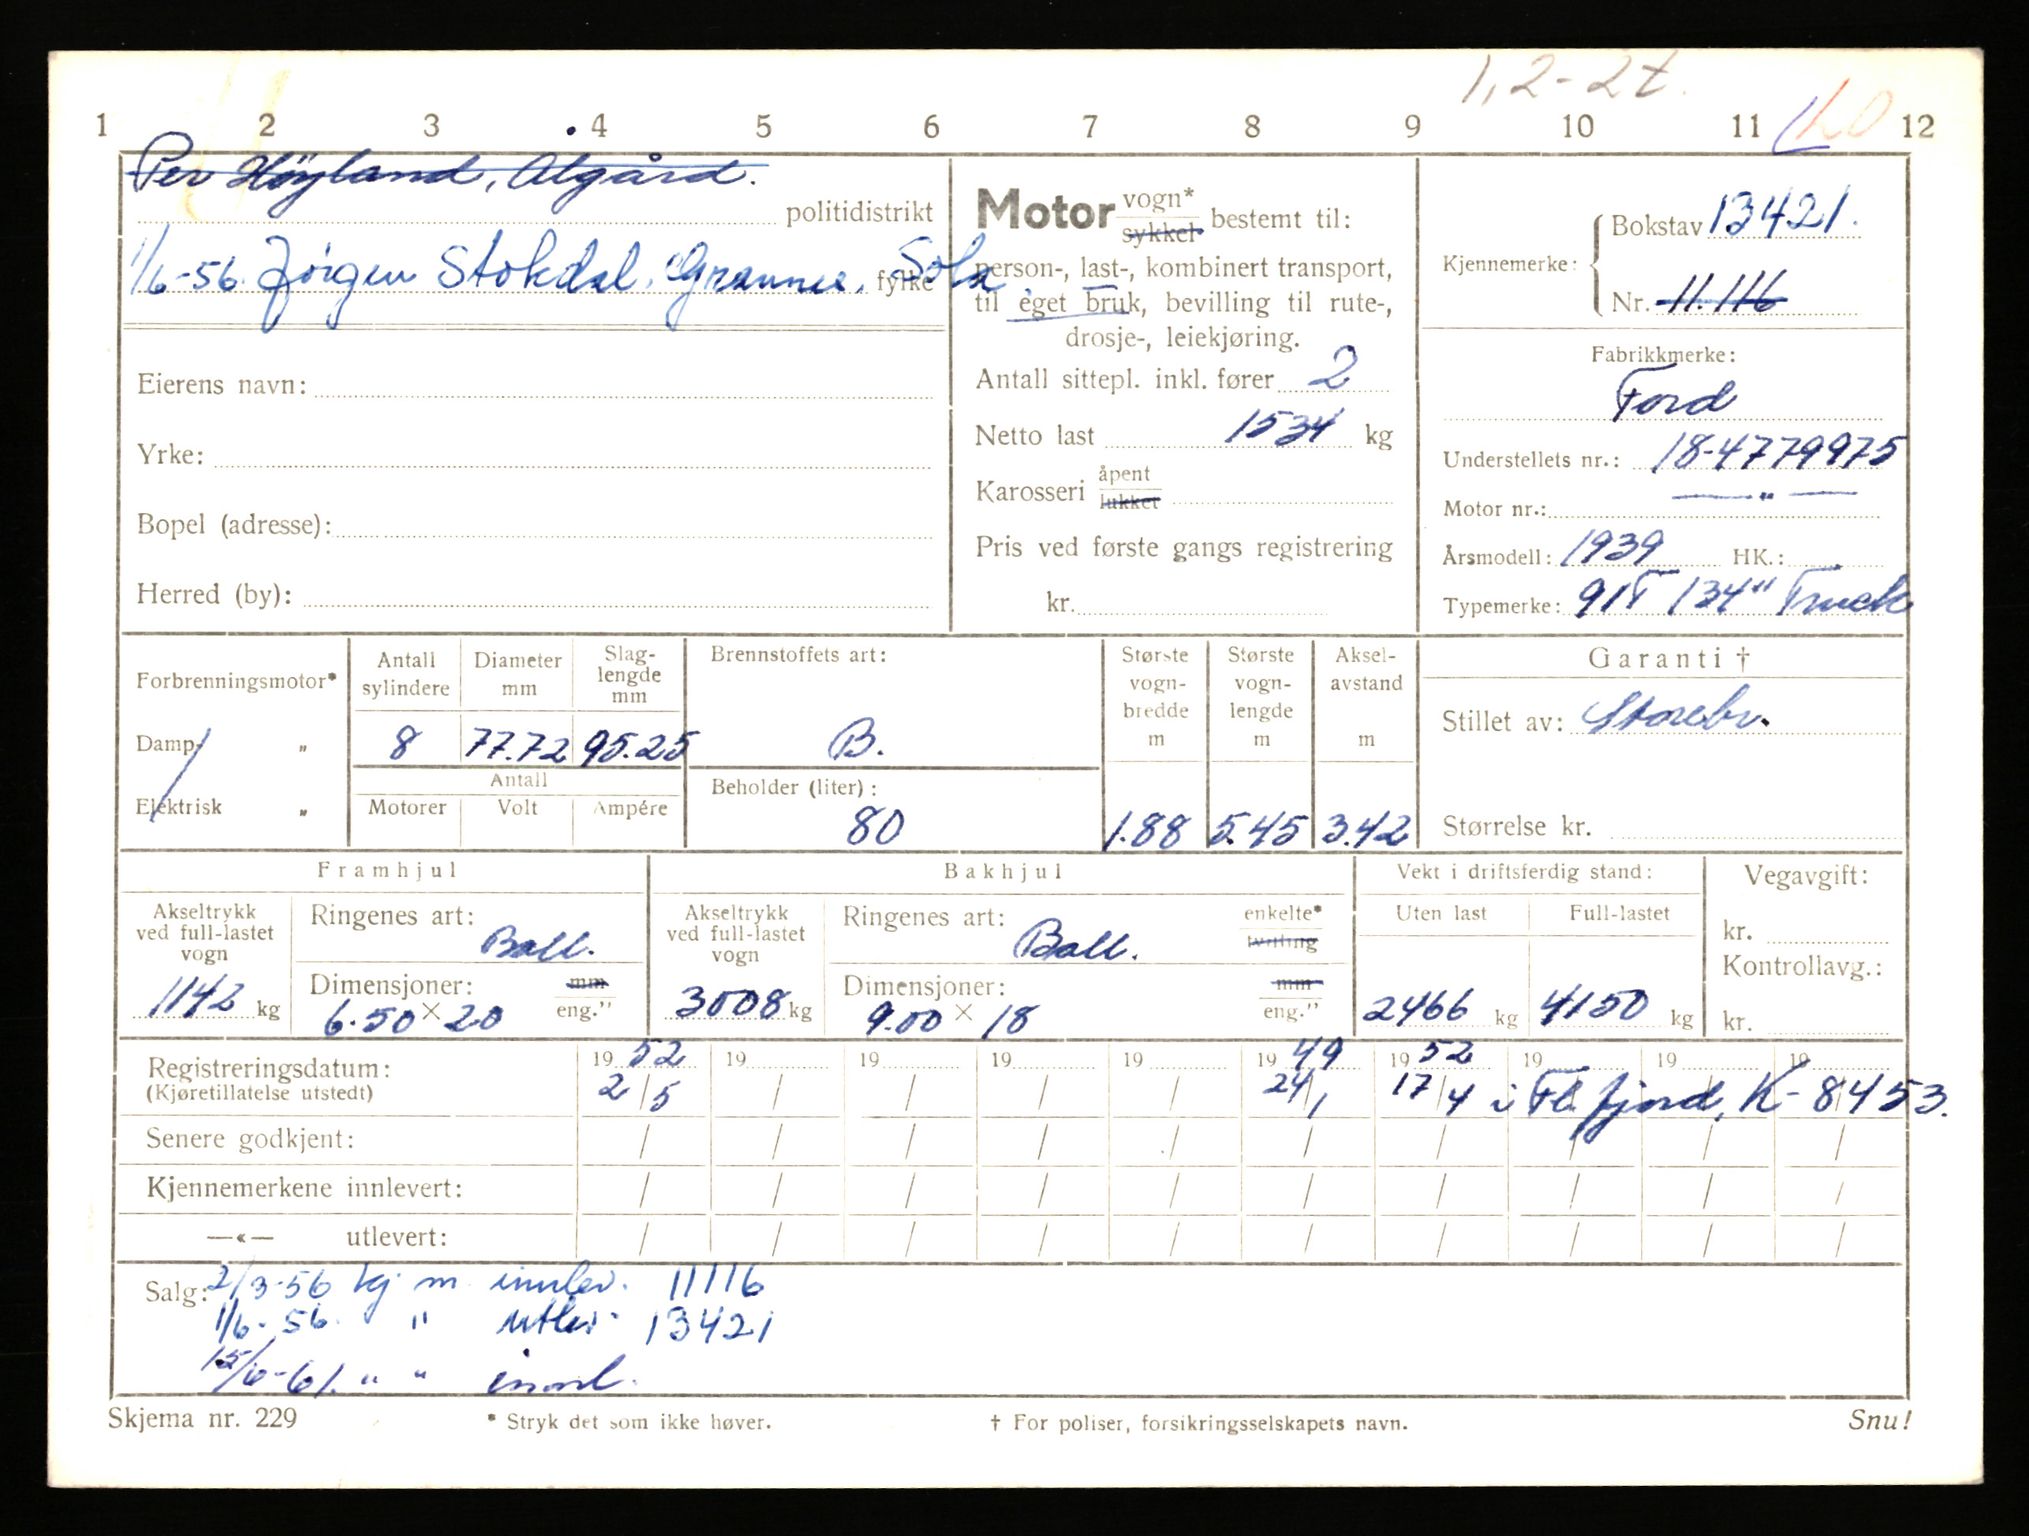 1,2-2t.
1 2 3 4 5 6 7 8 9 10 11 12
LO
Per Høyland, Algård.
politidistrikt
1/6-56. Jörgen Stokdal, Grannes, Sola
fylke
Eierens navn:
Yrke:
Bopel (adresse):
Herred (by):
Motor vogn* sykkel bestemt til:
person-, last-, kombinert transport,
til eget bruk, bevilling til rute-,
drosje-, leiekjøring.
Antall sittepl. inkl. fører 2
Netto last 1534 kg
Karosseri åpent lukket
Pris ved første gangs registrering
kr.
Kjennemerke: Bokstav 13421.
Nr. 11.116
Fabrikkmerke:
Ford
Understellets nr.: 18-4779975
Motor nr.: — " —
Årsmodell: 1939 HK.:
Typemerke: 91T 134" Truck
Forbrenningsmotor*
Damp- „
Elektrisk „
Antall sylindere 8
Diameter mm 77.72
Slag-lengde mm 95.25
Antall
Motorer Volt Ampére
Brennstoffets art:
B.
Beholder (liter):
80
Største vogn-bredde m 1.88
Største vogn-lengde m 5.45
Aksel-avstand m 3.42
Garanti †
Stillet av: Storebr.
Størrelse kr.
Framhjul
Akseltrykk ved full-lastet vogn
1142 kg
Ringenes art: Ball.
Dimensjoner: mm
6.50 × 20 eng."
Bakhjul
Akseltrykk ved full-lastet vogn
3008 kg
Ringenes art: enkelte* tvilling
Ball.
Dimensjoner: mm
9.00 × 18 eng."
Vekt i driftsferdig stand:
Uten last Full-lastet
2466 kg 4150 kg
Vegavgift:
kr.
Kontrollavg.:
kr.
Registreringsdatum: 19 52 19 19 19 19 19 49 19 52 19 19 19
(Kjøretillatelse utstedt) 2/5 / / / / 24/1 17/4 i Fl. fjord, K-8453.
Senere godkjent: / / / / / / / / / /
Kjennemerkene innlevert: / / / / / / / / / /
—«— utlevert: / / / / / / / / / /
Salg: 2/3-56 kj. m. innlev. 11116
1/6-56. " utlev. 13421
15/6-61. " " innl.
Skjema nr. 229
* Stryk det som ikke høver.
† For poliser, forsikringsselskapets navn.
Snu!